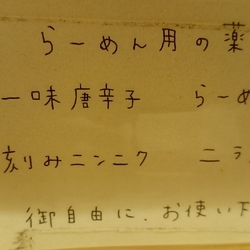 らーめん用の薬
一味唐辛子 らーめ
刻みニンニク ニラ
御自由に、お使い下